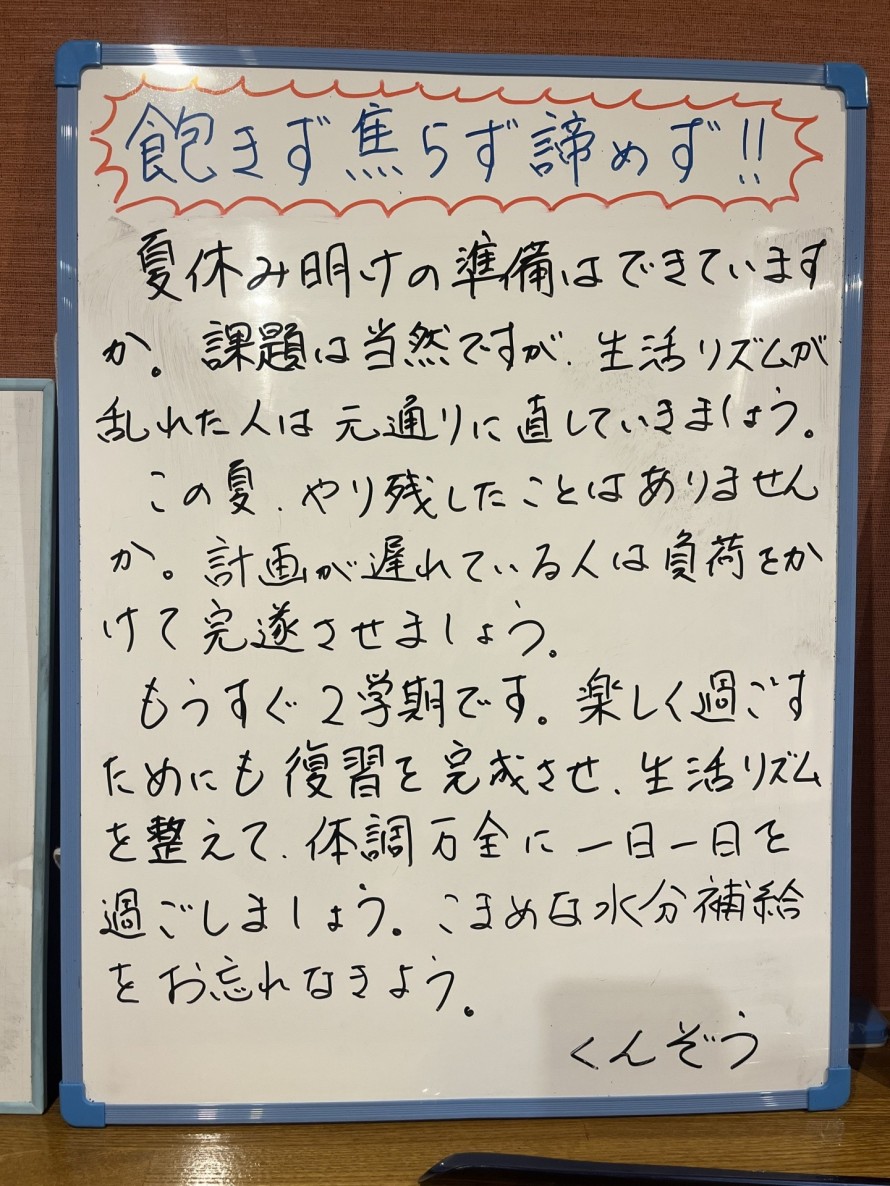 飽きず焦らず諦めず!!
夏休み明けの準備はできています
か。課題は当然ですが、生活リズムが
乱れた人は元通りに直していきましょう。
この夏、やり残したことはありません
か。計画が遅れている人は負荷をか
けて完遂させましょう。
もうすぐ2学期です。楽しく過ごす
ためにも復習を完成させ、生活リズム
を整えて、体調万全に一日一日を
過ごしましょう。こまめな水分補給
をお忘れなきよう。
くんぞう